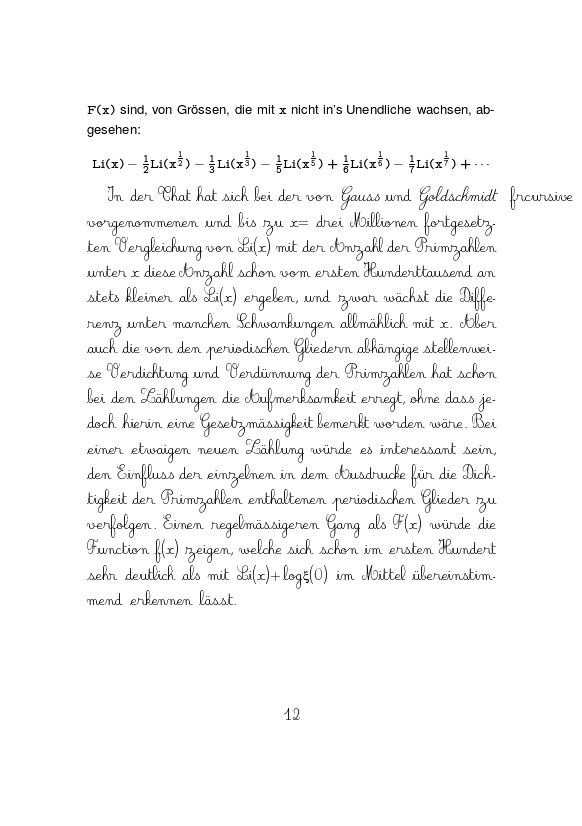 F(x) sind, von Grössen, die mit x nicht in's Unendliche wachsen, ab-
gesehen:
Li(x) − 1/2 Li(x^{1/2}) − 1/3 Li(x^{1/3}) − 1/5 Li(x^{1/5}) + 1/6 Li(x^{1/6}) − 1/7 Li(x^{1/7}) + ···
In der That hat sich bei der von Gauss und Goldschmidt frcursive
vorgenommenen und bis zu x= drei Millionen fortgesetz-
ten Vergleichung von Li(x) mit der Anzahl der Primzahlen
unter x diese Anzahl schon vom ersten Hunderttausend an
stets kleiner als Li(x) ergeben, und zwar wächst die Diffe-
renz unter manchen Schwankungen allmählich mit x. Aber
auch die von den periodischen Gliedern abhängige stellenwei-
se Verdichtung und Verdünnung der Primzahlen hat schon
bei den Zählungen die Aufmerksamkeit erregt, ohne dass je-
doch hierin eine Gesetzmässigkeit bemerkt worden wäre. Bei
einer etwaigen neuen Zählung würde es interessant sein,
den Einfluss der einzelnen in dem Ausdrucke für die Dich-
tigkeit der Primzahlen enthaltenen periodischen Glieder zu
verfolgen. Einen regelmässigeren Gang als F(x) würde die
Function f(x) zeigen, welche sich schon im ersten Hundert
sehr deutlich als mit Li(x)+logξ(0) im Mittel übereinstim-
mend erkennen lässt.
12